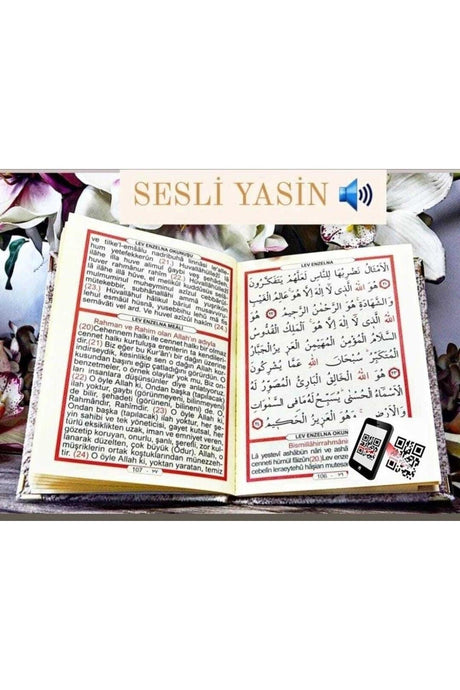 SESLİ YASİN
LEV ENZELNA OKUNUŞU
ve tilke'l-emsâlu nadribuhâ linnâsi le'alle-
hum yetefekkerûn (21.) Huvallâhullezî lâ
ilâhe illâ huve alimul gaybi veş şehâdeti
huver rahmânur rahîm (22.) Huvallâhullezî
lâ ilâhe illâ hûve, el melikul kuddûsus selâ-
mulmuminul muheyminul azîzul cebbârul
mutekebbir, subhânallâhi ammâ yuşrikûn
(23.) Huvallâhul hâlikul bâriul musavviru
lehul esmâul husnâ, yusebbihu lehu mâ fîs
semâvâti vel ard. Ve huvel azîzul hakîm (24.)
LEV ENZELNA MEÂLİ
Rahman ve Rahim olan Allah'ın adıyla
(20)Cehennem halkı ile cennet halkı bir olmaz
cennet halkı kurtuluşa erenlerin ta kendileri-
dir.(21) Biz eğer bu Kur'ân'ı bir dağın üzerine
indirseydik, kesinlikle sen o dağı Allah
korkusundan başını eğip çatladığını görürdün. O
benzetmeler, o örnek olaylar yok mu, Biz on-
ları insanlara düşünsünler diye anlatıyoruz.
(22) O öyle Allah ki, O'ndan başka (tapılacak)
ilah yoktur, gaybı (görünmeyeni, bilinmeyeni)
de bilir, şehadeti (görüleni, bilineni) de. O,
Rahmândır, Rahîmdir. (23) O öyle Allah ki,
Ondan başka (tapılacak) ilah yoktur, her şe-
yin sahibi ve tek yöneticisi, gayet kutsal, her
türlü eksiklikten uzak, iman ve emniyet veren,
gözetip koruyan, onurlu, şanlı, şerefli, her zor-
lanarak düzelten, çok büyük (Odur). Allah, o
müşriklerin ortak koştuklarından münezzeh-
tir. (24) O öyle Allah ki, yoktan yaratan, temiz
107
LEV ENZELNA
الْاَمْثَالُ نَضْرِبُهَا لِلنَّاسِ لَعَلَّهُمْ يَتَفَكَّرُونَ
هُوَ اللّٰهُ الَّذِى لَا اِلٰهَ اِلَّا هُوَ عَالِمُ الْغَيْبِ
وَالشَّهَادَةِ هُوَ الرَّحْمٰنُ الرَّحِيمُ هُوَ
اللّٰهُ الَّذِى لَا اِلٰهَ اِلَّا هُوَ اَلْمَلِكُ الْقُدُّوسُ
السَّلَامُ الْمُؤْمِنُ الْمُهَيْمِنُ الْعَزِيزُ الْجَبَّارُ
الْمُتَكَبِّرُ سُبْحَانَ اللّٰهِ عَمَّا يُشْرِكُونَ
هُوَ اللّٰهُ الْخَالِقُ الْبَارِئُ الْمُصَوِّرُ لَهُ
الْاَسْمَاءُ الْحُسْنٰى يُسَبِّحُ لَهُ مَا فِى السَّمٰوَاتِ
وَالْاَرْضِ وَهُوَ الْعَزِيزُ الْحَكِيمُ
LEV ENZELNA OKUN
Bismillâhirrahmâni
Lâ yestevî ashâbün nâri ve ashâ
cenneti hümül fâizûn(20.)Lev enze
cebelin leraeytehû hâşian mutesa
106